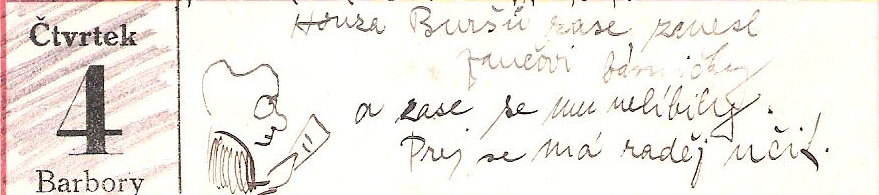 Čtvrtek
4
Barbory
Honza Buršů zase zanesl
fančovi básničky
a zase se mu nelíbily.
Prej se má raděj učit.